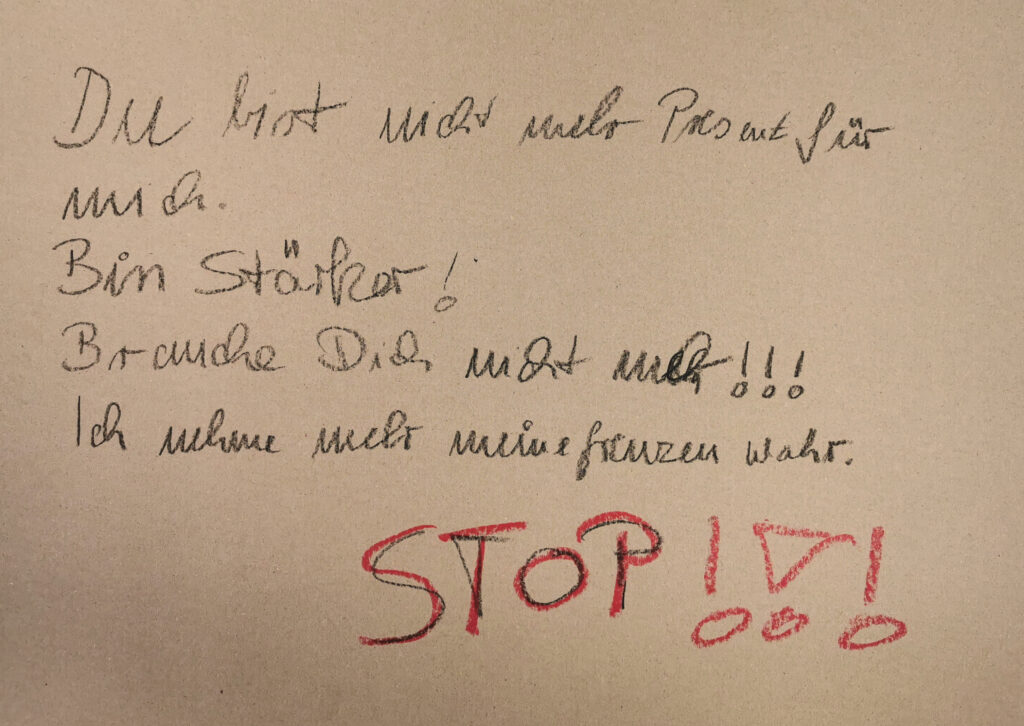 Du bist nicht mehr Present für
mich.
Bin Stärker!
Brauche Dich nicht mehr!!!
Ich nehme mehr meine Grenzen wahr.
STOP!!!